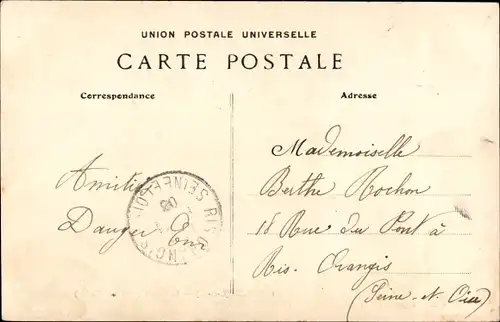 UNION POSTALE UNIVERSELLE
CARTE POSTALE
Correspondance
Adresse
Amitié
Danger
Mademoiselle
Berthe Rochon
18 Rue du Pont à
Ris. Orangis
(Seine-et-Oise)
RIS-ORANGIS SEINE-ET-OISE
08